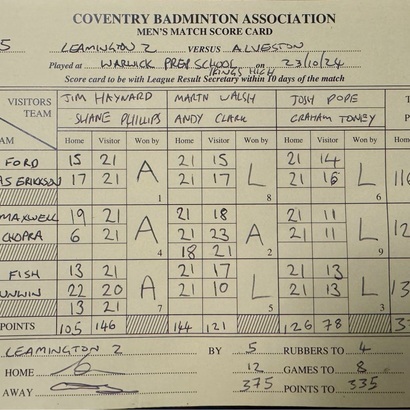 COVENTRY BADMINTON ASSOCIATION
MEN'S MATCH SCORE CARD
5 LEAMINGTON 2 VERSUS ALVESTON
Played at WARWICK PREP SCHOOL on 23/10/24
KINGS HIGH
Score card to be with League Result Secretary within 10 days of the match
VISITORS JIM HAYNARD MARTN WALSH JOSH POPE T
TEAM SHANE PHILLIPS ANDY CLARK GRAHAM TONEY P
AM Home Visitor Won by Home Visitor Won by Home Visitor Won by
FORD 15 21 A 21 15 L 21 14 L
AS ERICKSON 17 21 1 21 17 8 21 16 6 116
MAXWELL 19 21 A 21 18 A 21 11 L
CHOPRA 6 21 21 23 21 11 12
4 18 21 2 9
FISH 13 21 A 21 17 L 21 13 L
UNWIN 22 20 21 10 21 13 13
13 21 7 5 3
POINTS 105 146 144 121 126 78 37
LEAMINGTON 2 BY 5 RUBBERS TO 4
HOME 12 GAMES TO 8
AWAY 375 POINTS TO 335